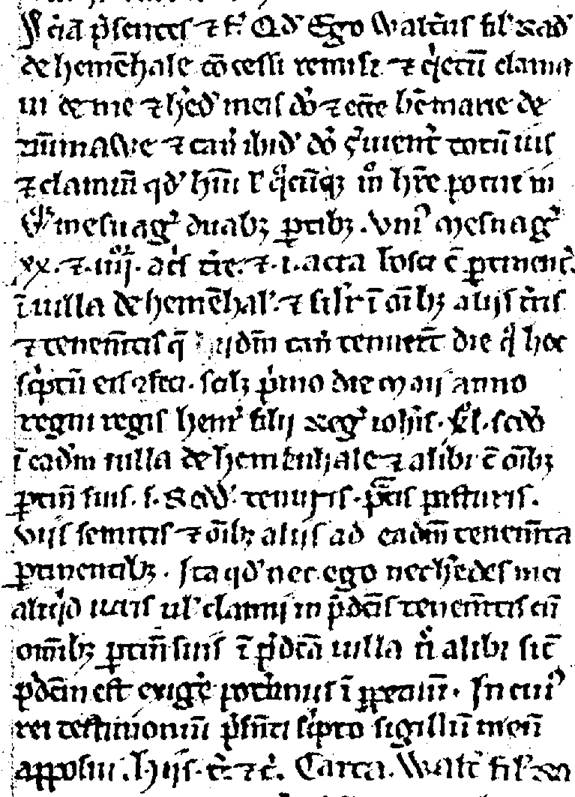 Sciāt p̄sentes ⁊ f̄. Qd̛ Ego Walt̛us fil̛ Rad̛
de hemēhale cōcessi remisi ⁊ q̛etū clama
ui de me ⁊ h̛ed̛ meis dō ⁊ ecc̄e bē marie de
⁊ can̛ ibid̛ dō s̛uient̛ totū ius
⁊ clamiū qd̛ hui ł q̛cūq; m° hr̄e potui in
mesuag̛ duab; ptib; uni̛ mesuag̛
xx. ⁊. iiij. ac̄s t̄re. ⁊. i. acra bosci c̄ ptinenc̛.
ī uilla de hemēhal̛. ⁊ silr̄ ī oīb; alijs t̄ris
⁊ tenem̄tis q̄ idm̄ can̛ tenuer̄t die q̛ hoc
sc̛ptū eis ɔfeci. scil; p̛mo die maij anno
regni regis henr̛ filij reg̛ ioh̄is. xl. scd̛o
ī ead̄m uilla de hemēhale ⁊ alibi c̄ oīb;
ptin̄ suis. s. redd̛. tenuris. p̄tis pasturis.
uijs semitis ⁊ oīb; alijs ad eadm̄ tenem̄ta
ptinentib;. Ita qd̛ nec ego nec h̛edes mei
aliq̛d iuris ul̛ clamij in p̄dc̄is tenem̄tis cū
omīb; ptin̄ suis ī p̄dc̄a uilla ł alibi sic̄
p̄dc̄m est exig̛e pot̛imus ī ppetuū. In cui̛
rei testimoniū p̄sn̄ti sc̛pto sigillū meū
apposui. Hijs. t̄. ⁊ c̄. Carta. Walt̛ fil̛ Ra